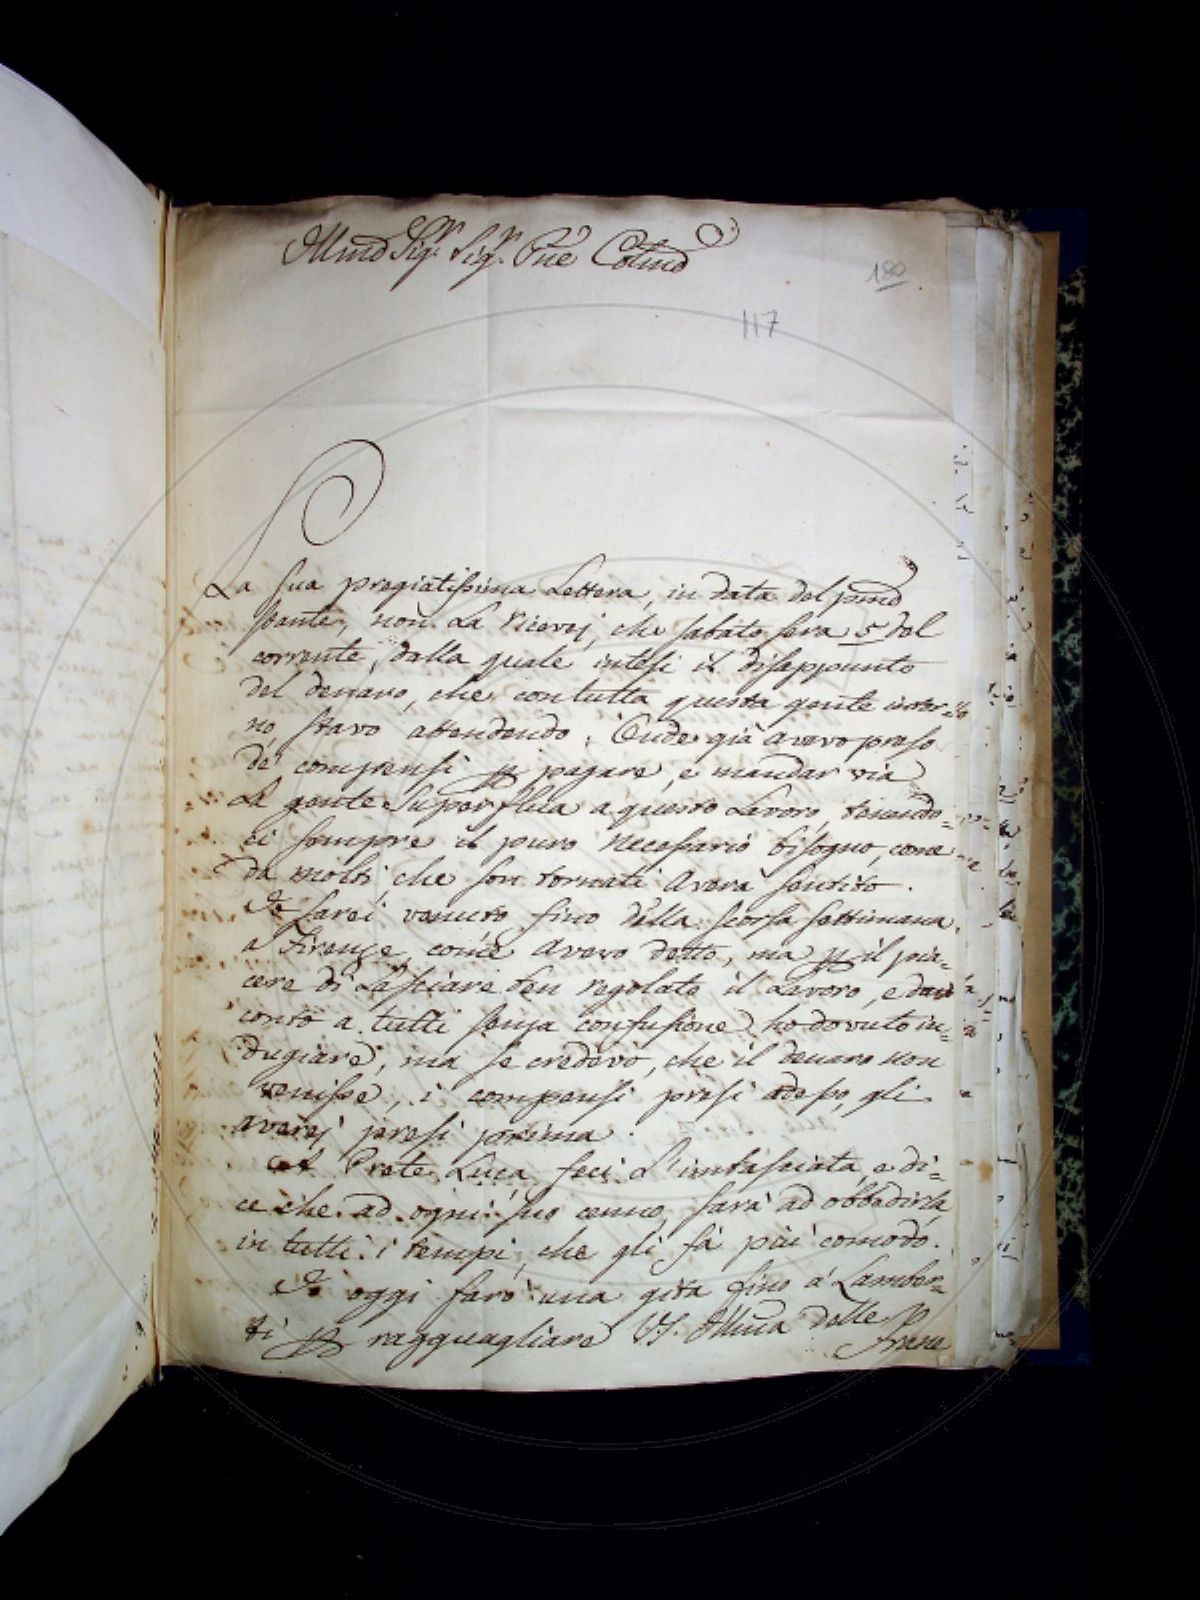 Illmo Sig.r Sig.r Pne Colmo
180
117
La sua pregiatissima Lettera, in data del pmo
stante, non La ricevej, che sabato sera 5 del
corrente, dalla quale intesi il disappunto
del denaro, che con tutta questa gente intor=
no stavo attendendo. Onde già avevo preso
de' compensi p pagare, e mandar via
La gente superflua a questo Lavoro, tenendo=
ci sempre il puro necessario bisogno, come
da molti, che son tornati averà sentito.
Io sarei venuto fino della scorsa settimana
a Firenze, come avevo detto, ma p il pia=
cere di Lasciare ben regolato il Lavoro, e dare
conto a tutti senza confusione ho dovuto in=
dugiare, ma se credevo, che il denaro non
venisse, i compensi presi adesso, gli
averej presi prima.
Al Prete Luca feci L'imbasciata, e di=
ce che ad ogni suo cenno, sarà ad obbedirla
in tutti i tempi, che gli fà più comodo.
Io oggi farò una gita fino a' Lamber=
ti p ragguagliare VS. Illma delle